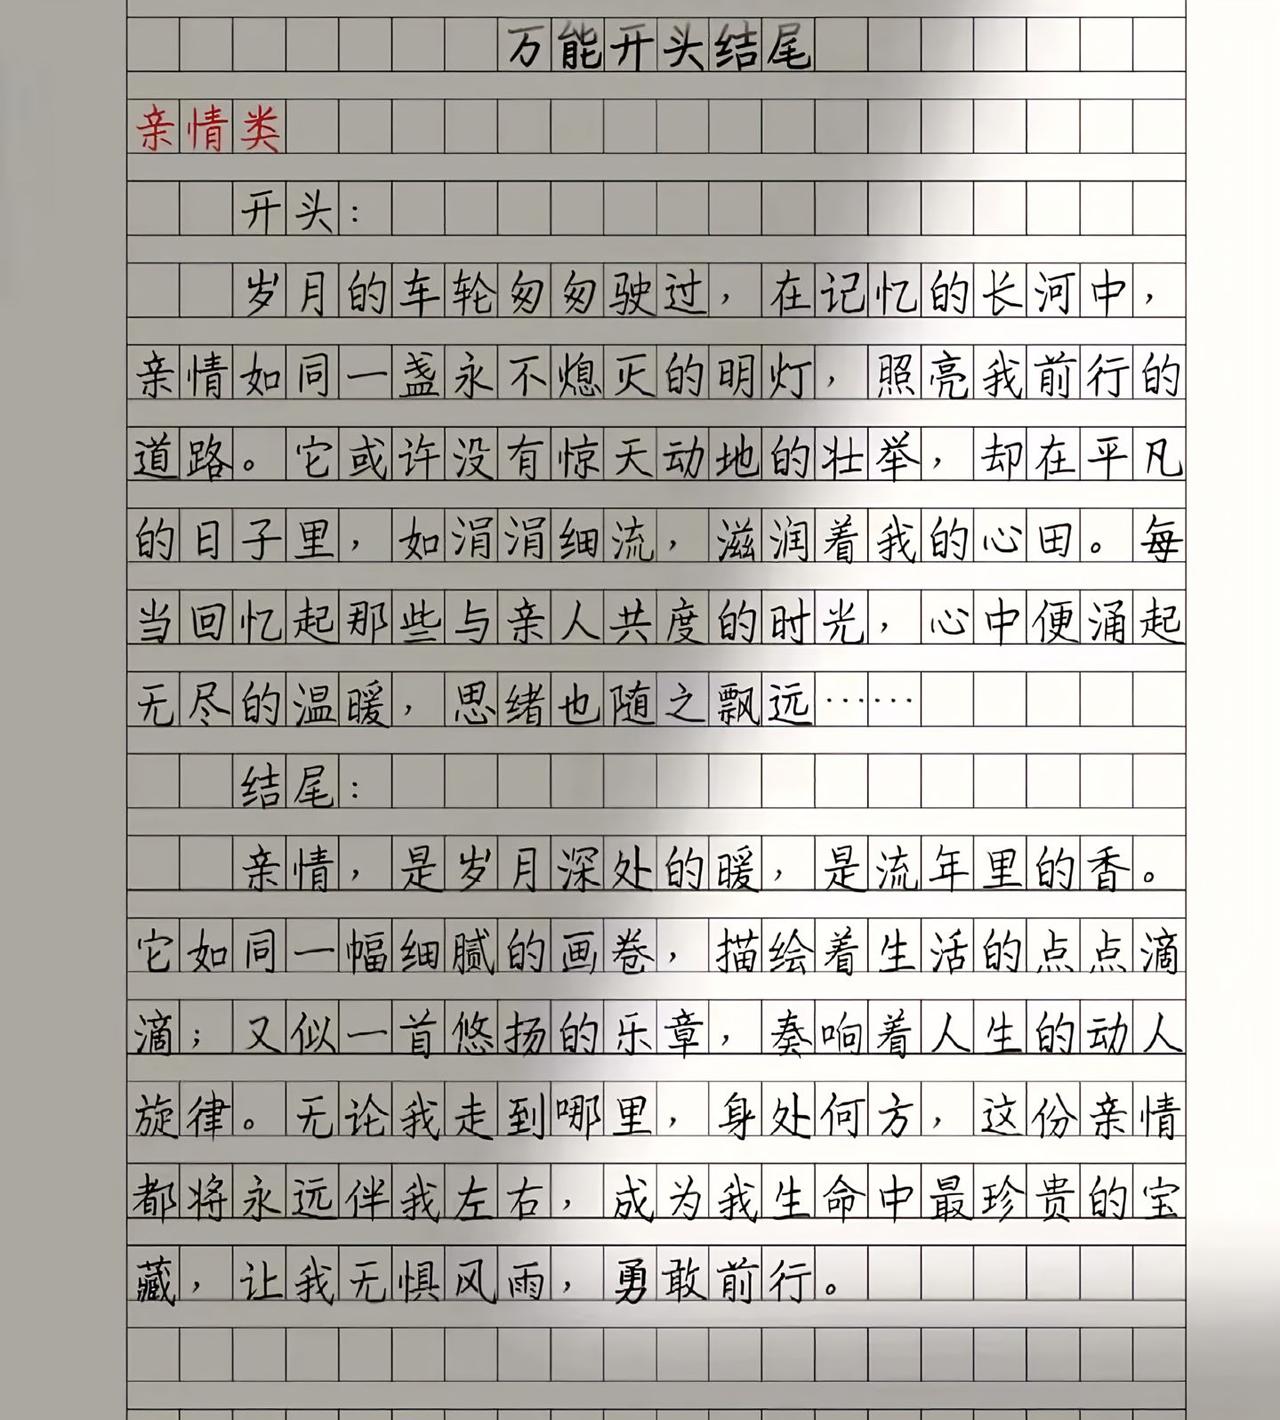 万能开头结尾
亲情类
开头：
岁月的车轮匆匆驶过，在记忆的长河中，
亲情如同一盏永不熄灭的明灯，照亮我前行的
道路。它或许没有惊天动地的壮举，却在平凡
的日子里，如涓涓细流，滋润着我的心田。每
当回忆起那些与亲人共度的时光，心中便涌起
无尽的温暖，思绪也随之飘远……
结尾：
亲情，是岁月深处的暖，是流年里的香。
它如同一幅细腻的画卷，描绘着生活的点点滴
滴；又似一首悠扬的乐章，奏响着人生的动人
旋律。无论我走到哪里，身处何方，这份亲情
都将永远伴我左右，成为我生命中最珍贵的宝
藏，让我无惧风雨，勇敢前行。